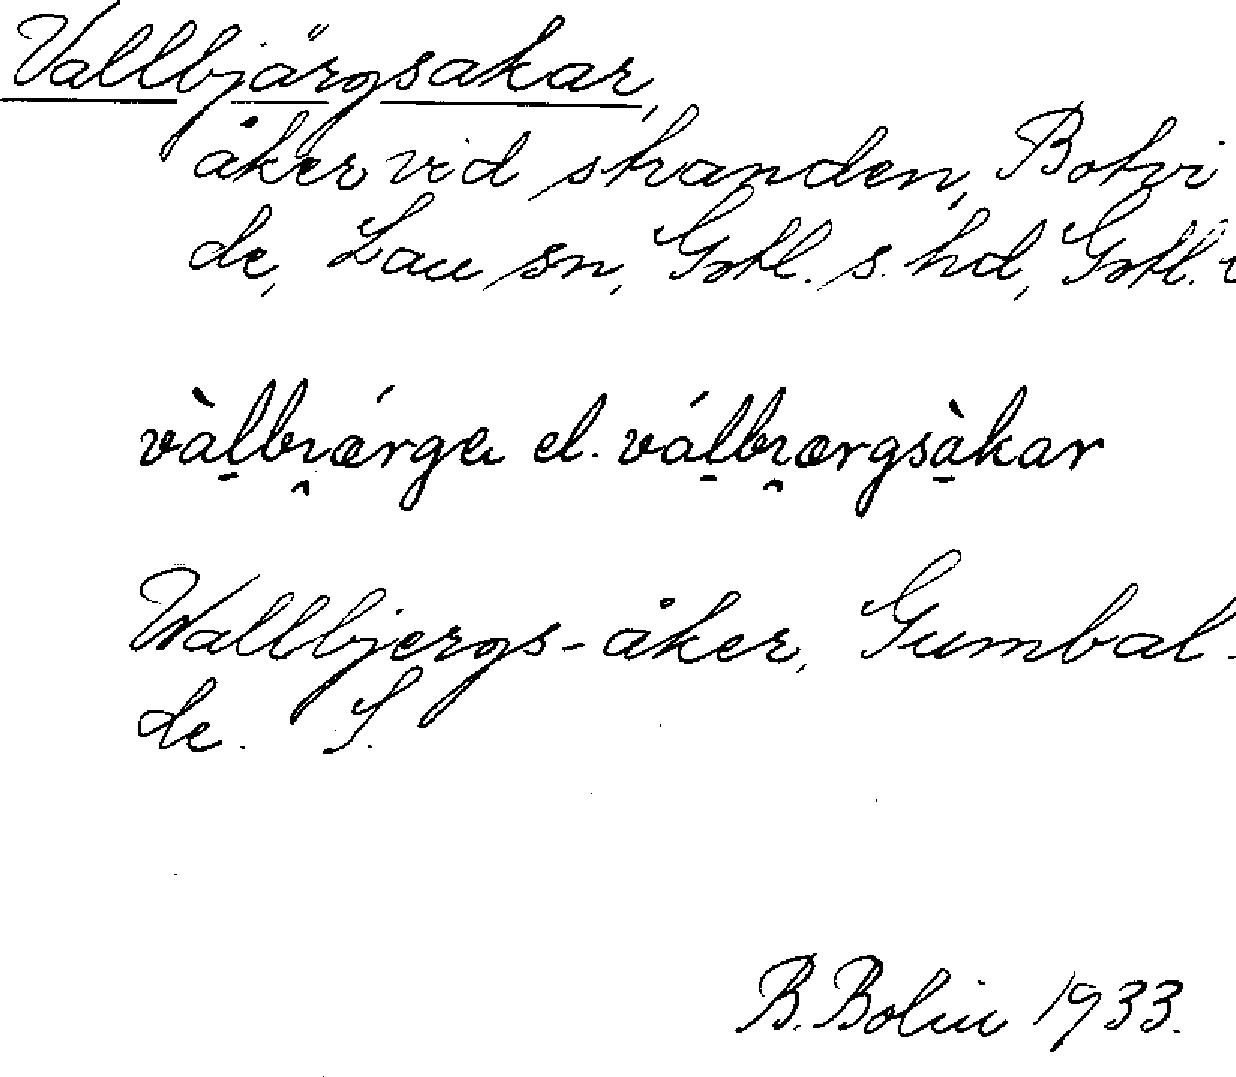 Vallbjärgsakar,
åker vid stranden, Botvi
de, Lau sn, Gotl. s. hd, Gotl.
vàlbi̯ærga el. válbi̯ærgsàkar
Wallbjergs-åker, Gumbal-
de. S.
B. Bolin 1933.